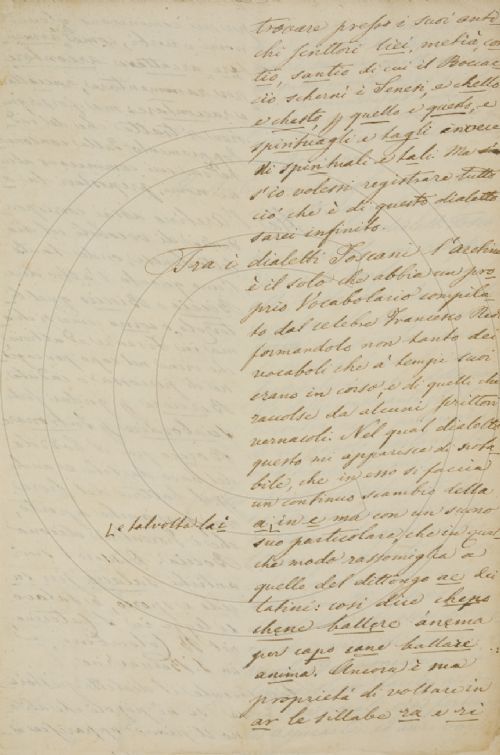 trovare presso i suoi anti
chi scrittori lici, metià, con
tio, santio di cui il Boccac
cio schernì i Senesi, e chello
e chesto, p quello e questo, e
spirituagli e tagli invece
di spirituali e tali. Ma
s'io volessi registrare tutto
ciò che è di questo dialetto
sarei infinito.
Tra i dialetti Toscani l'Aretino
è il solo che abbia un pro
prio Vocabolario compila
to dal celebre Francesco Redi
formandolo non tanto dei
vocaboli che a' tempi suoi
erano in corso, e di quelli che
raccolse da alcuni scrittori
vernacoli. Nel qual dialetto
questo mi apparisce di nota
bile, che in esso si faccia
un continuo scambio della
e talvolta la i
a, in e ma con un suono
suo particolare, che in qual
che modo rassomiglia a
quello del dittongo ae dei
latini: così dice
chene battere ánema
per capo cane battare
anima. Ancora è sua
proprietà di voltare in
ar le sillabe ra e ri